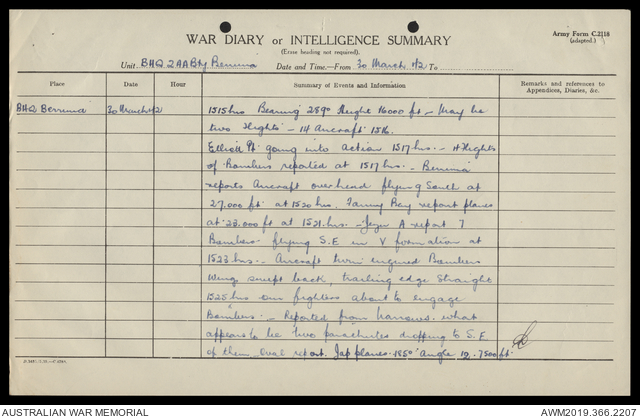 Army Form C.2118
(adapted.)
WAR DIARY or INTELLIGENCE SUMMARY
(Erase heading not required).
Unit BHQ 2AA Bty Berrima Date and Time—From 30 March 42 To
Place Date Hour Summary of Events and Information Remarks and references to Appendices, Diaries, &c.
BHQ Berrima 30 March 42 1515 hrs Bearing 289° Height 16000 ft - May be
two flights - 14 Aircraft 1516.
Elliott Pt going into action 1517 hrs. - 4 flights
of Bombers reported at 1517 hrs. - Berrima
reports Aircraft overhead flying South at
27,000 ft at 1520 hrs. Fanny Bay report planes
at 23,000 ft at 1521 hrs. - A report 7
Bombers flying S.E in V formation at
1523 hrs. - Aircraft twin engined Bombers
Wing swept back, trailing edge straight
1525 hrs our fighters about to engage
Bombers. - Reported from Narrows what
appears to be two parachutes dropping to S.E
of them. Oval report. Jap planes 185° Angle 12. 7500 ft.
AUSTRALIAN WAR MEMORIAL
AWM2019.366.2207